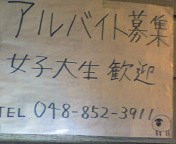 アルバイト募集
女子大生歓迎
TEL 048-852-3911